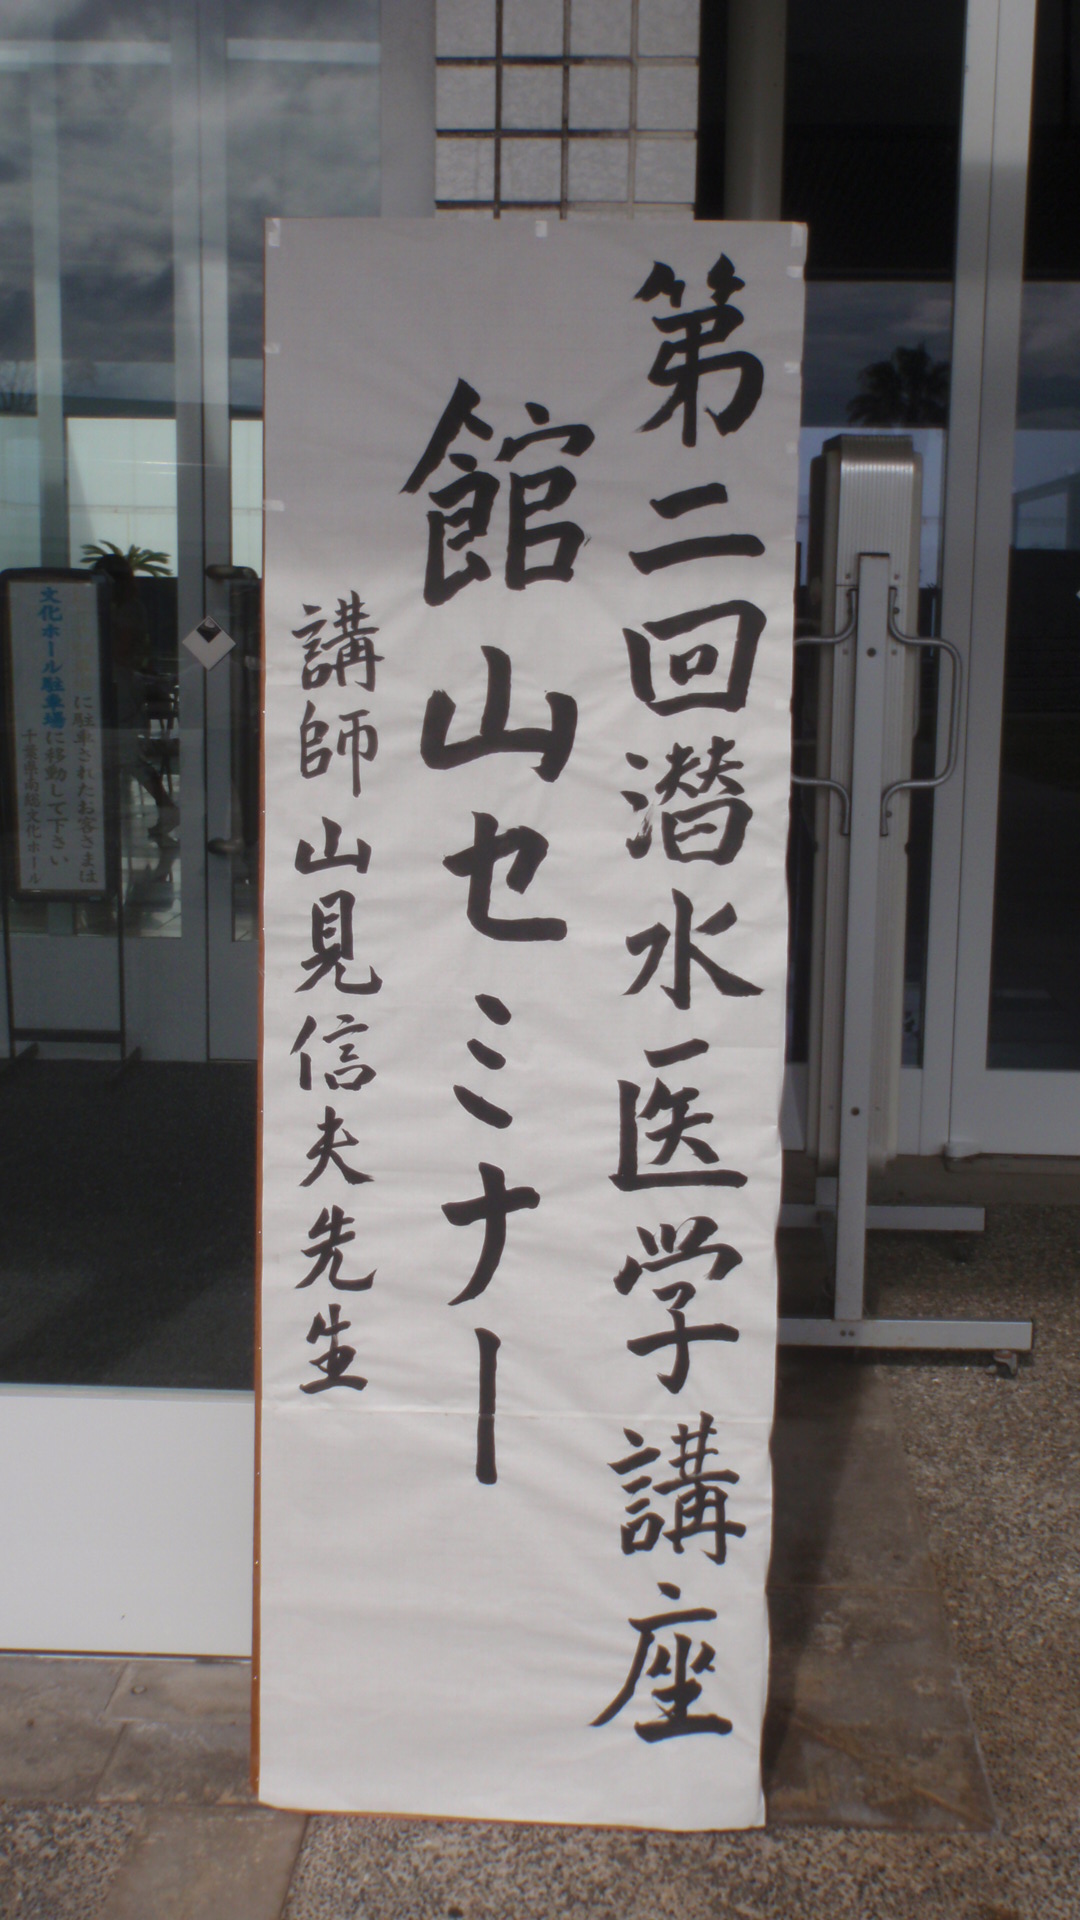 第二回潜水医学講座
館山セミナー
講師 山見信夫先生
に駐車されたお客さまは
文化ホール駐車場に移動して下さい
千葉県南総文化ホール